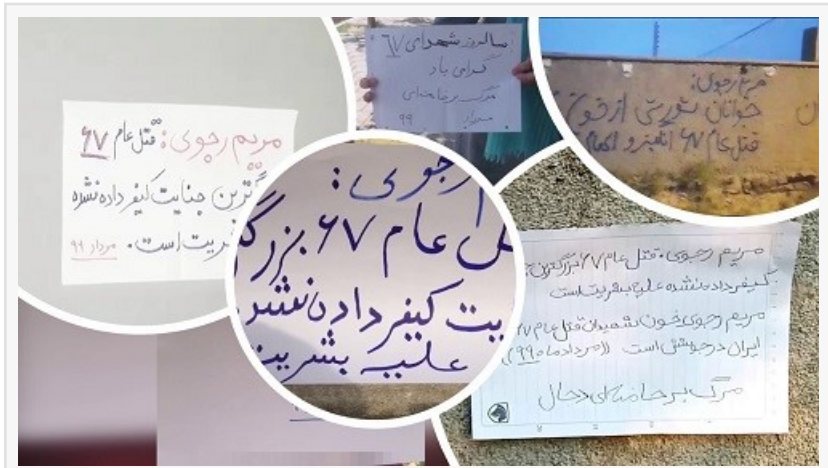 مریم رجوی: قتل عام ۶۷
گترین جنایت کیفر داده نشده
ریت است. مرداد ۹۹
سالروز شهدای ۶۷
گرامی باد
مرگ بر خامنه‌ای
۹۹
مریم رجوی:
جوانان شورشی از خون
قتل عام ۶۷
رجوی:
ل عام ۶۷ بزرگ
یت کیفر داده نشد
علیه بشریت
مریم رجوی: قتل عام ۶۷ بزرگترین
کیفر داده نشده علیه بشریت است
مریم رجوی خون شهیدان قتل عام ۶۷
ایران در جوشش است ((مرداد ماه ۹۹))
مرگ بر خامنه‌ای دجال